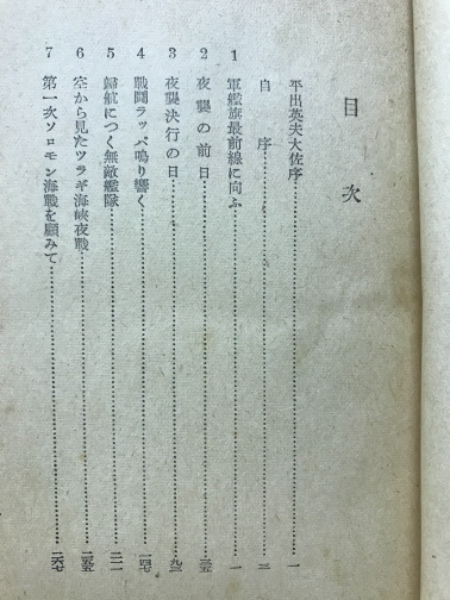 目次
平出英夫大佐序……一
自序……三
1 軍艦旗最前線に向ふ……一
2 夜襲の前日……三五
3 夜襲決行の日……九三
4 戰鬪ラッパ鳴り響く……一四七
5 歸航につく無敵艦隊……二一一
6 空から見たツラギ海峽夜戰……二五五
7 第一次ソロモン海戰を顧みて……二六七